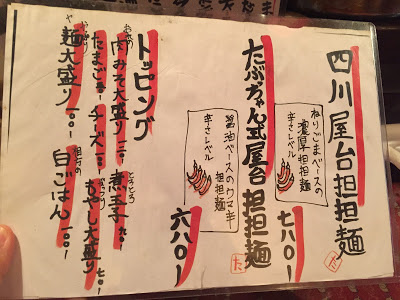 四川屋台担担麺
ねりごまベースの
濃厚担担麺
辛さレベル
七八〇ー
た
たぶちゃん式屋台担担麺
醤油ベースのウマ辛
担担麺
辛さレベル
六八〇ー
た
トッピング
肉みそ大盛り 煮玉子 七〇ー
たまご チーズ 一〇〇ー もやし大盛り 七〇ー
麺大盛り 一〇〇ー 白ごはん 一〇〇ー